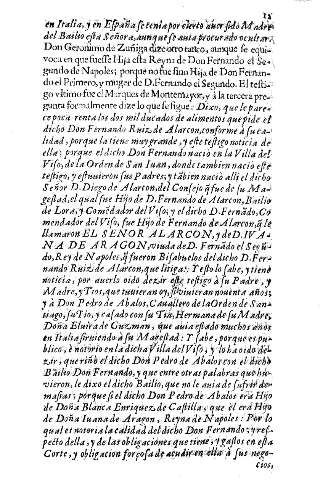 15
en Italia, y en España se tenia por cierto auer sido Madre
del Bailio esta Señora, aunque se auia procurado ocultar.
Don Geronimo de Zuñiga dize otro tanto, aunque se equi-
voca en que fuesse Hija esta Reyna de Don Fernando el Se-
gundo de Napoles; porque no fue sino Hija de Don Fernan-
do el Primero, y muger de D. Fernando el Segundo. El testi-
go vltimo fue el Marques de Montemayor, y à la tercera pre-
gunta formalmente dize lo que se sigue: Dixo, que le pare-
ce poca renta los dos mil ducados de alimentos que pide el
dicho Don Fernando Ruiz de Alarcon, conforme à su ca-
lidad, porque la tiene muy grande, y este testigo noticia de
ella; porque el dicho Don Fernando naciò en la Villa del
Viso, de la Orden de San Iuan, donde tambien naciò este
testigo, y estuuieron sus Padres; y tãbien naciò alli el dicho
Señor D. Diego de Alarcon, del Consejo q̃ fue de su Ma-
gestad, el qual fue Hijo de D. Fernando de Alarcon, Bailio
de Lora, y Comẽdador del Viso; y el dicho D. Fernãdo, Co-
mendador del Viso, fue Hijo de Fernando de Alarcon, q̃ le
llamaron EL SEÑOR ALARCON, y de D. IVA-
NA DE ARAGON, viuda de D. Fernãdo el Segũ-
do, Rey de Napoles, q̃ fueron Bisabuelos del dicho D. Fer-
nando Ruiz de Alarcon, que litiga: Y esto lo sabe, y tiene
noticia, por auerlo oido dezir este testigo à su Padre, y
Madre, y Tios, que tuuieran oy, si viuieran nouenta años;
y à Don Pedro de Abalos, Cauallero de la Orden de San-
tiago, su Tio, y casado con su Tia, Hermana de su Madre,
Doña Eluira de Guzman, que auia estado muchos años
en Italia siruiendo à su Magestad: Y sabe, porque es pu-
blico, è notorio en la dicha Villa del Viso, y lo ha oido de-
zir, que riñò el dicho Don Pedro de Abalos con el dicho
Bailio Don Fernando, y que entre otras palabras que hu-
vieron, le dixo el dicho Bailio, que no le auia de sufrir de-
masias; porque si el dicho Don Pedro de Abalos era Hijo
de Doña Blanca Enriquez de Castilla, que èl era Hijo
de Doña Iuana de Aragon, Reyna de Napoles: Por lo
qual es notoria la calidad del dicho Don Fernando: y res-
pecto della, y de las obligaciones que tiene, y gastos en esta
Corte, y obligacion forçosa de acudir en ella à sus nego-
cios,